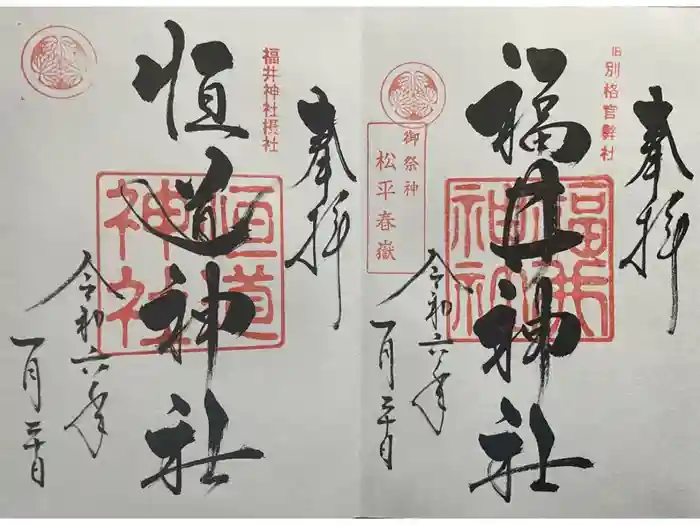 旧別格官幣社
奉拝
福井神社
福井神社
御祭神
松平春嶽
令和六年
一月二十日
奉拝
福井神社摂社
恒道神社
恒道神社
令和六年
一月二十日